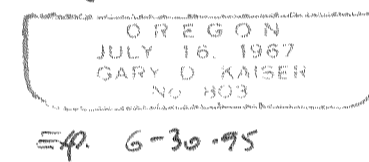 OREGON
JULY 16, 1967
GARY D KAISER
No 803
Exp. 6-30-95